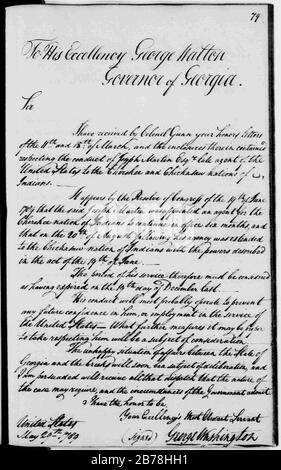 79
To His Excellency George Walton
Governor of Georgia.
Sir
I have received by Colonel Gunn your honors letters
of the 11th and 15th of March, and the enclosures therein contained
respecting the conduct of Joseph Martin Esqr late agent of the
United States to the Cherokee and Chickasaw nations of
Indians.
It appears by the Resolve of Congress of the 19th of June
1788 that the said Joseph Martin was appointed an agent for the
Cherokee nation of Indians to continue in office six months, and
that on the 20th of August following his agency was extended
to the Chickasaw nation of Indians with the powers described
in the act of the 19th of June.
The period of his service therefore must be considered
as having expired on the 19th day of December last.
His conduct will most probably operate to prevent
any future confidence in him, or employment in the service of
the United States — What further measures it may be proper
to take respecting him will be a subject of consideration.
The unhappy situation of affairs between the State of
Georgia and the Creeks will soon be a subject of deliberation, and
I am persuaded will receive all that dispatch that the nature of
the case may require, and the circumstances of the Government admit
I have the honor to be
Your Excellency's Most Obedt Servant
United States
May 20th 1789
(Signed) George Washington
alamy
Image ID: 2B78HH1
www.alamy.com